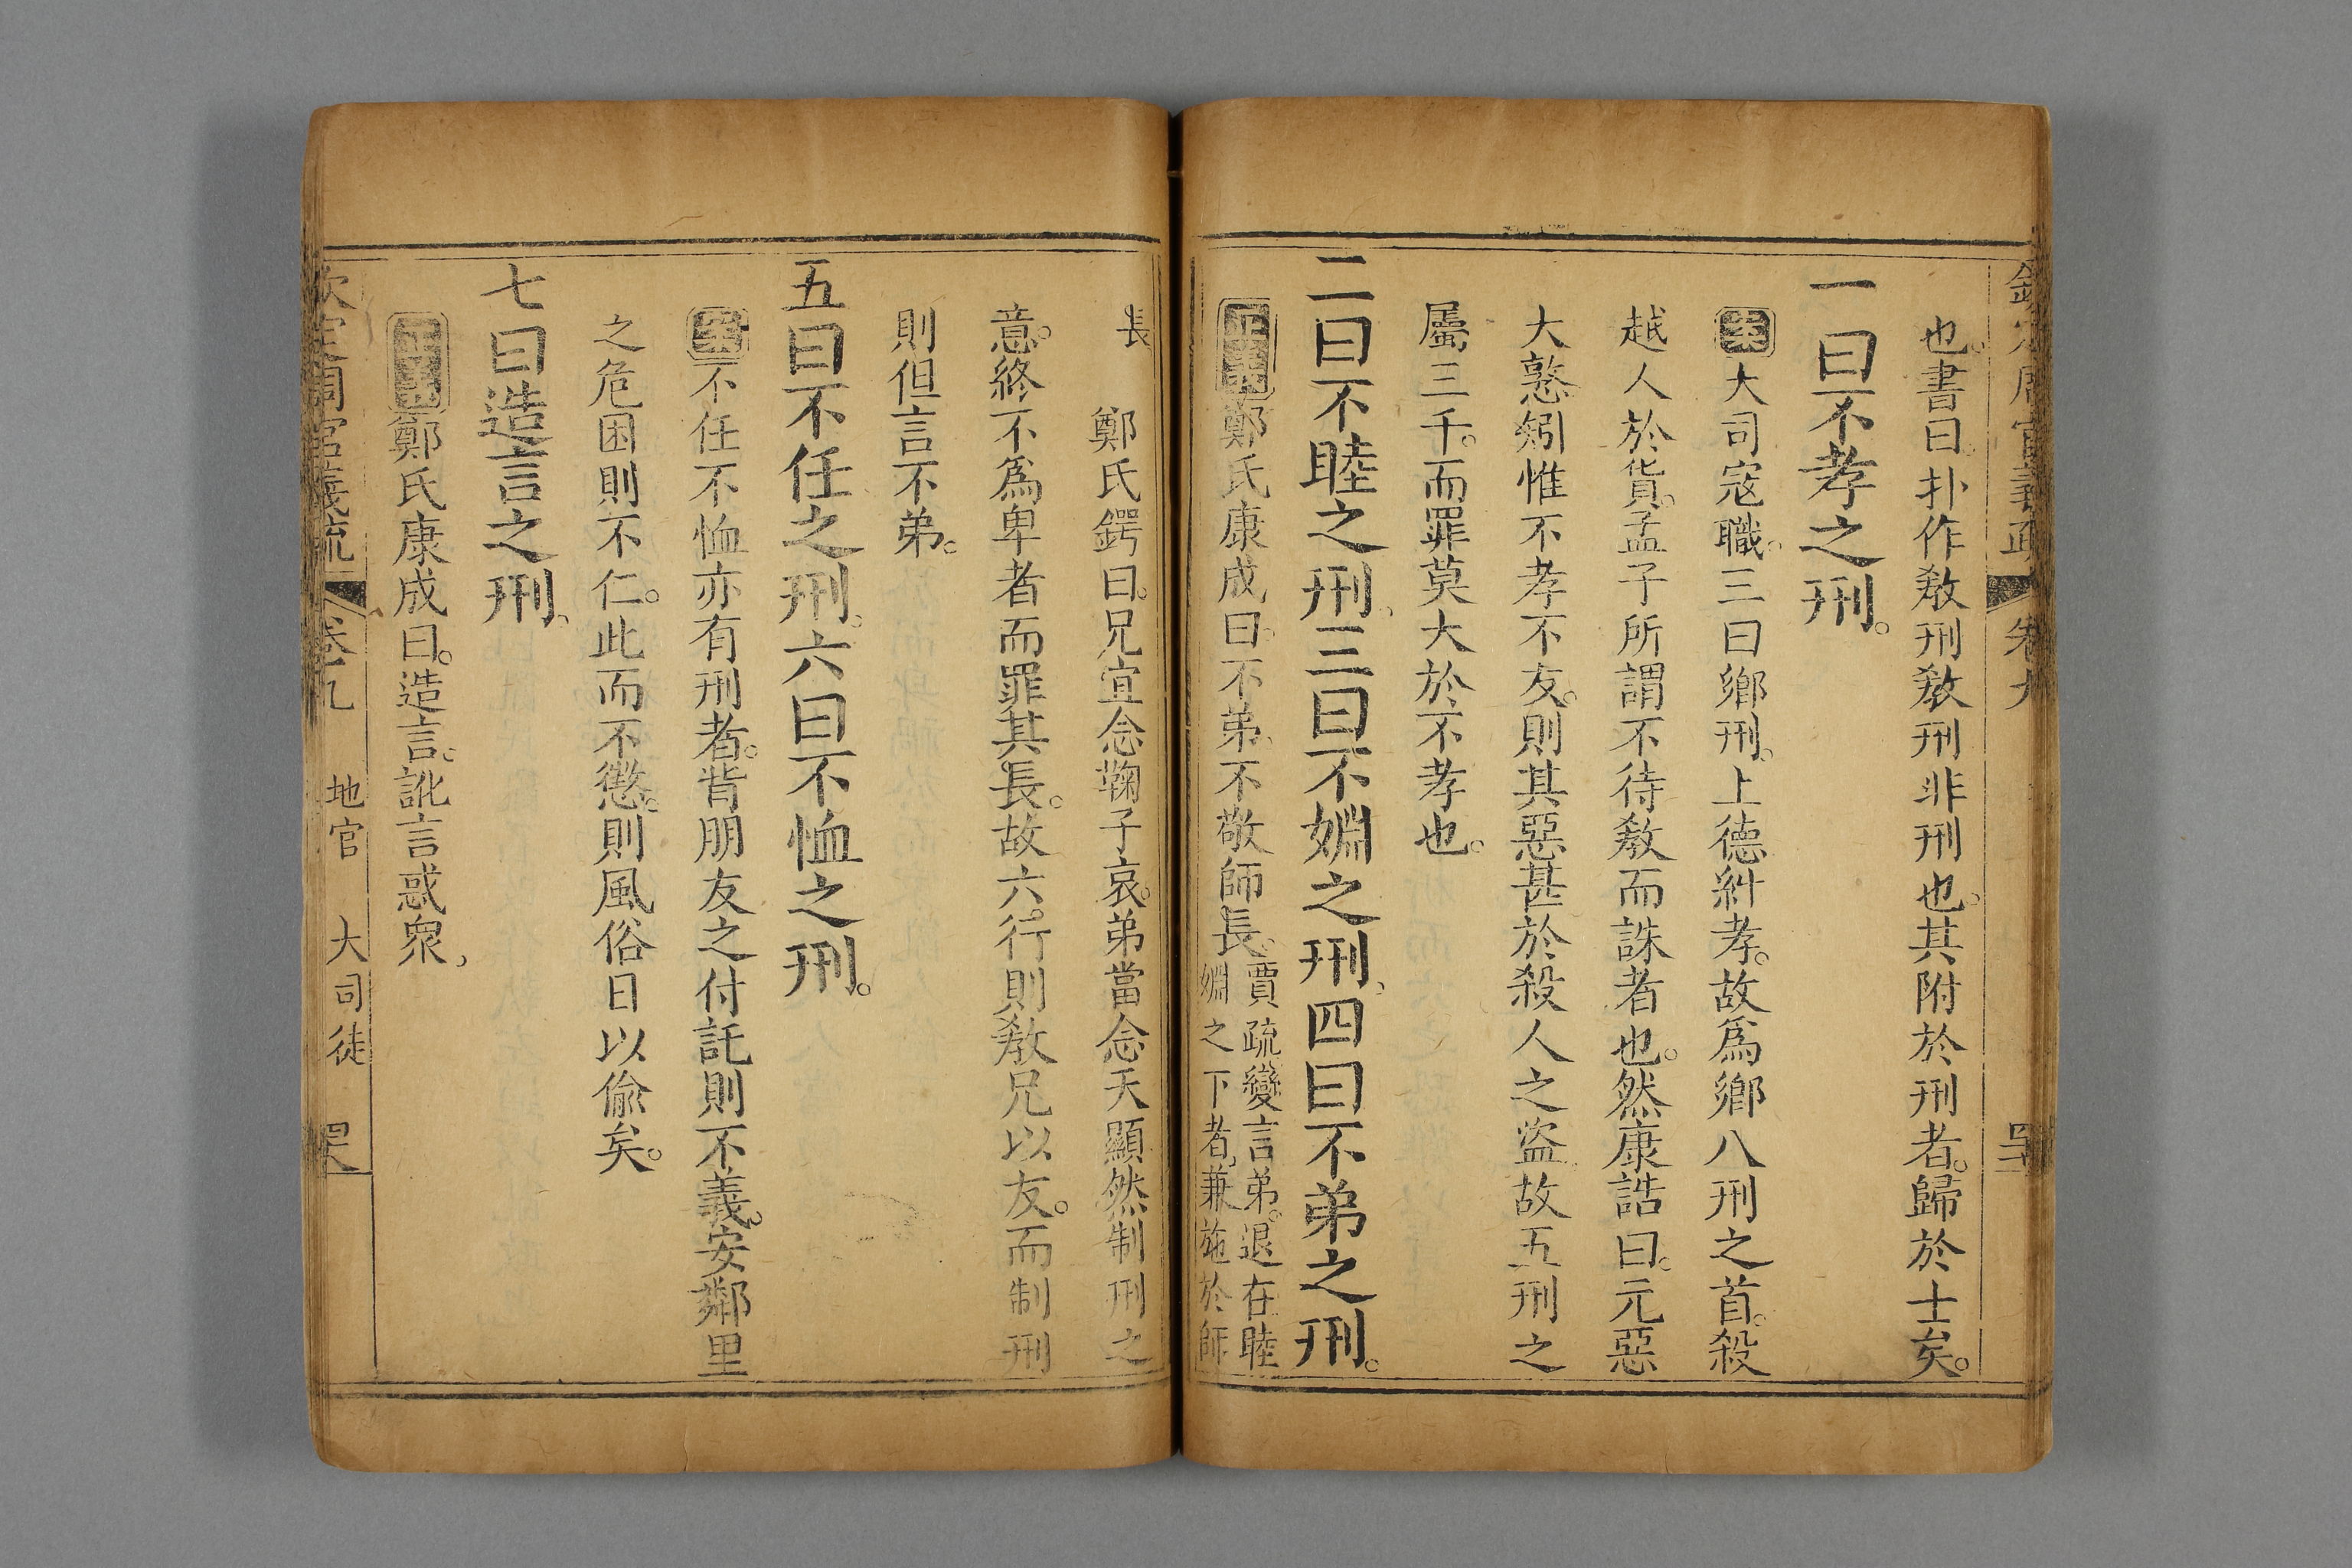 欽定周官義疏 卷九
也。書曰。扑作敎刑敎刑非刑也。其附於刑者。歸於士矣。
一曰不孝之刑。
案大司寇職。三曰鄉刑。上德糾孝。故爲鄉八刑之首。殺
越人於貨。孟子所謂不待敎而誅者也。然康誥曰。元惡
大憝矧惟不孝不友。則其惡甚於殺人之盜。故五刑之
屬三千。而罪莫大於不孝也。
二曰不睦之刑。三曰不婣之刑。四曰不弟之刑。
正義鄭氏康成曰。不弟、不敬師長。賈疏變言弟。退在睦
婣之下者、兼施於師
長
鄭氏鍔曰。兄宜念鞠子哀。弟當念天顯然制刑之
意。終不爲卑者而罪其長。故六行則敎兄以友。而制刑
則但言不弟。
五曰不任之刑。六曰不恤之刑。
案不任不恤亦有刑者。背朋友之付託則不義。安鄰里
之危困則不仁。此而不懲。則風俗日以偷矣。
七曰造言之刑、
正義鄭氏康成曰。造言。訛言惑衆、
欽定周官義疏 卷九 地官 大司徒